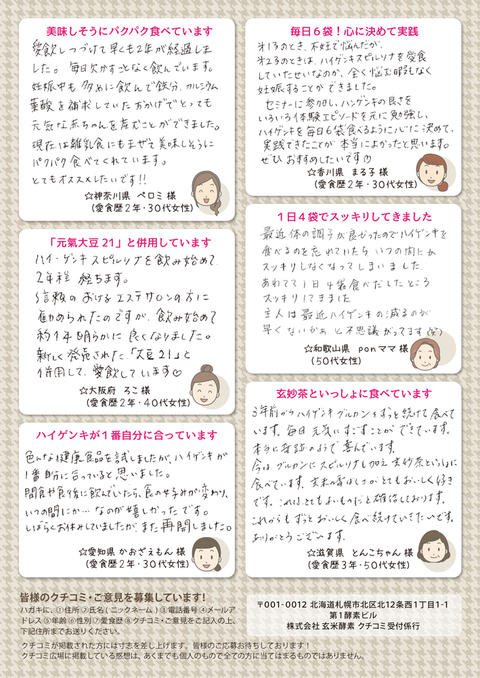 美味しそうにパクパク食べています
愛飲しつづけて早くも2年が経過しまし
た。毎日欠かすことなく飲んでいます。
妊娠中も多めに飲んで鉄分、カルシウム
葉酸を補求していたおかげでとっても
元気な赤ちゃんを産むことができました。
現在は離乳食にもまぜて美味しそうに
パクパク食べてくれています。
とてもオススメしたいです!!
☆神奈川県 ペロミ 様
(愛食歴2年・30代女性)
「元氣大豆21」と併用しています
ハイ・ゲンキスピルリナを飲み始めて
2年程経ちます。
信頼のおけるエステサロンの方に
勧められたのですが、飲み始めて
約1年明らかに良くなりました。
新しく発売された「大豆21」と
併用して、愛飲しています♡
☆大阪府 ろこ 様
(愛食歴2年・40代女性)
ハイゲンキが1番自分に合っています
色んな健康食品を試しましたが、ハイゲンキが
1番私に合っていると思いました。
間食や食後に飲んでいたら、食の好みが変わり、
いつの間にか…なのが嬉しかったです。
しばらくお休みしていましたが、また再開しました。
☆愛知県 かおざえもん 様
(愛食歴2年・30代女性)
毎日6袋!心に決めて実践
オ1子のとき、不妊で悩んだが、
オ2子のときは、ハイゲンキスピルリナを愛食
していたせいなのか、全く悩む暇もなく
妊娠することができました。
セミナーに参加し、ハイゲンキの良さを
いろいろ体験エピソードを元に勉強し、
ハイゲンキを毎日6袋食べるように心に決めて、
実践できたことが本当によかったと思います。
ぜひおすすめしたいです♡
☆香川県 まる子 様
(愛食歴2年・30代女性)
1日4袋でスッキリしてきました
最近体の調子が良かったのでハイゲンキを
食べるのを忘れていたらいつの間にか
スッキリしなくなってしまいました。
あわてて1日4袋食べだしたところ
スッキリしてきました
主人は最近ハイゲンキの減るのが
早くないかぁと不思議がってます
☆和歌山県 ponママ 様
(50代女性)
玄妙茶といっしょに食べています
3年前からハイゲンキグルカンをずっと続けて食べて
います。毎日元気にすごすことができています。
本当に有難のようで喜んでいます。
今は、グルカンにスピルリナも加え玄妙茶といっしょに
食べています。玄米の香ばしさがとてもおいしく好き
です。これはとてもよいものだと確信しております。
これからもずっとおいしく食べ続けていきたいです。
ありがとうございます。
☆滋賀県 とんこちゃん 様
(愛食歴3年・50代女性)
皆様のクチコミ・ご意見を募集しています!
ハガキに、①住所②氏名(ニックネーム)③電話番号④メールア
ドレス⑤年齢⑥性別⑦愛食歴⑧クチコミ・ご意見をご記入の上、
下記住所までお送りください。
〒001-0012 北海道札幌市北区北12条西1丁目1-1
第1酵素ビル
株式会社 玄米酵素 クチコミ受付係行
クチコミが掲載された方には寸志を差し上げます。皆様のご応募お待ちしております!
クチコミ広場に掲載している感想は、あくまでも個人のもので全ての方に当てはまるものではありません。